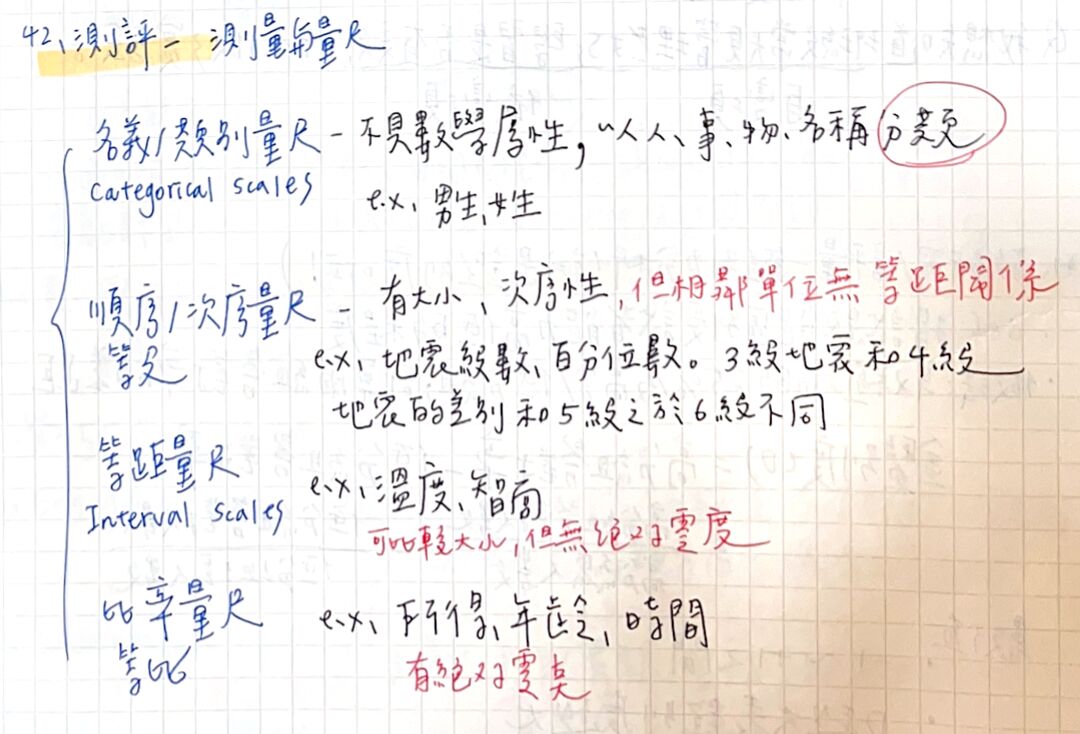 42、測評一 測量與量尺
名義/類別量尺 - 不具數學屬性, 以人、事、物、名稱分類
Categorical scales
e.x、男生、女生
順序/次序量尺 - 有大小、次序性, 但相鄰單位無等距關係
等級
e.x、地震級數、百分位數。3級地震和4級
地震的差別和5級之於6級不同
等距量尺
Interval scales
e.x、溫度、智商
可比較大小, 但無絕對零度
比率量尺
等比
e.x、所得、年齡、時間
有絕對零點